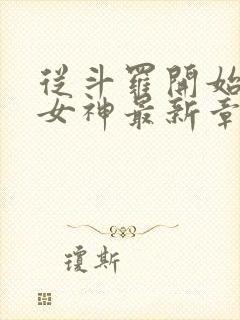 從斗羅開始
女神最新章
瓊斯